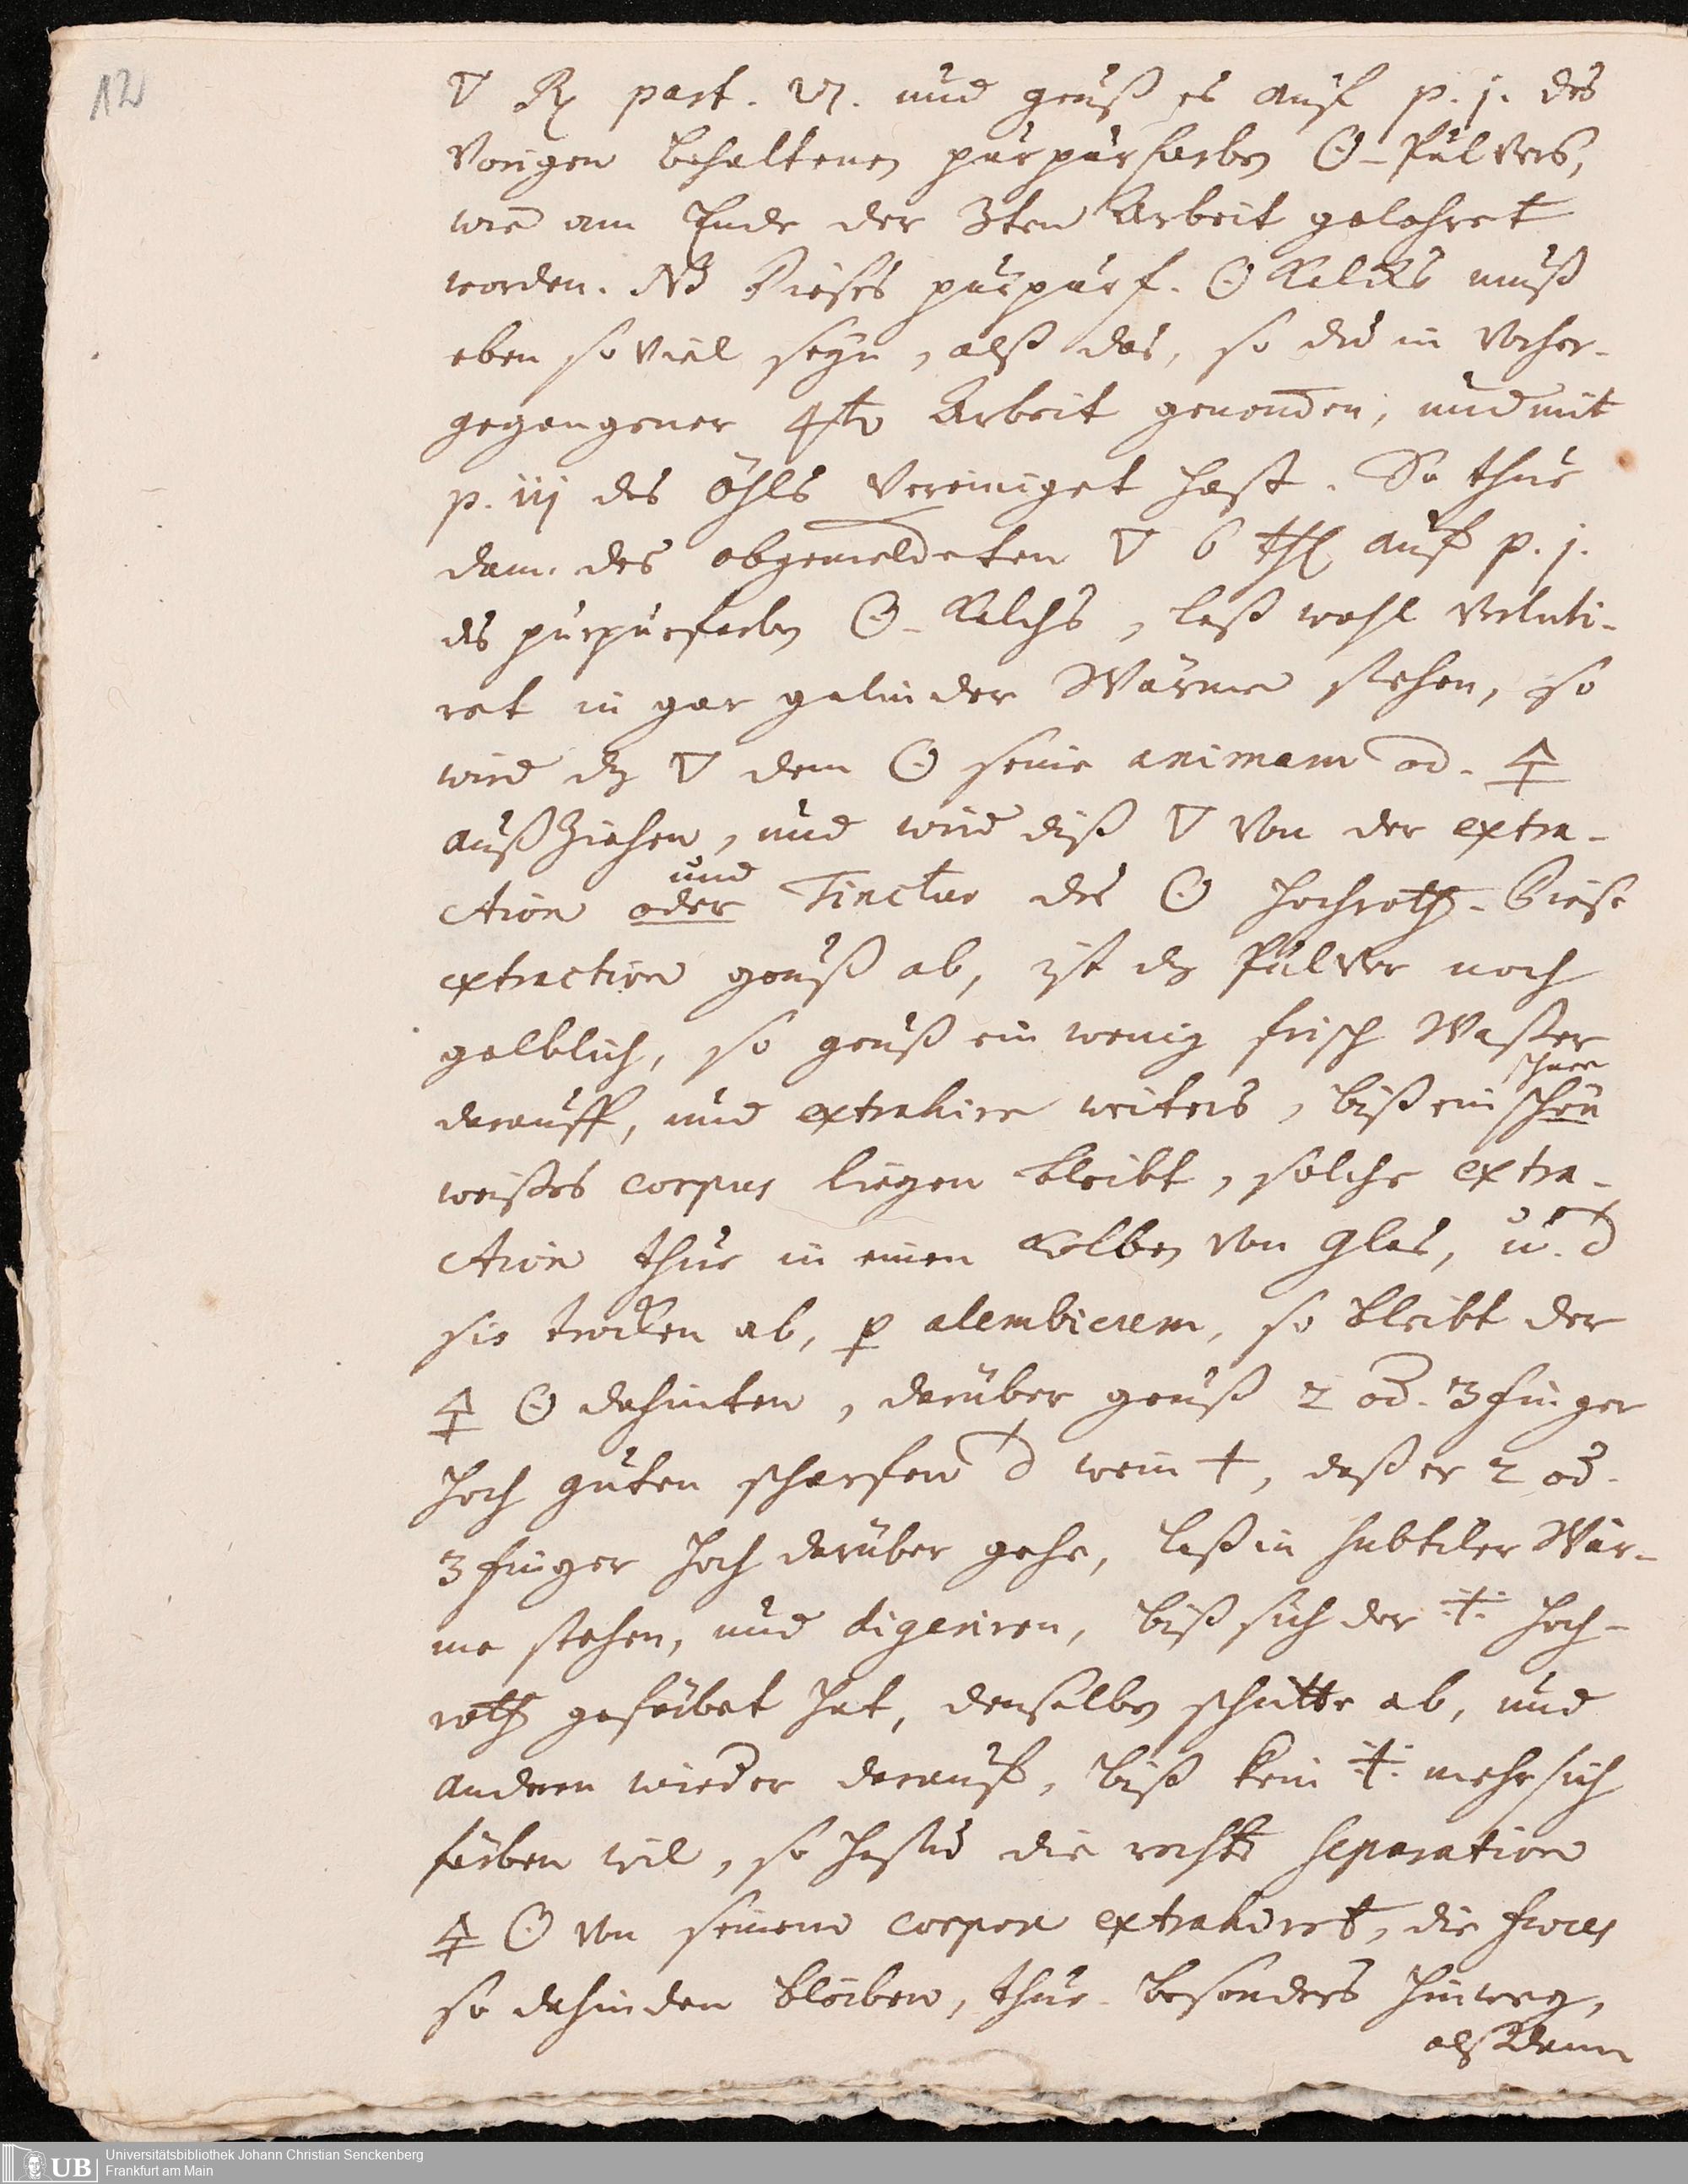 12
🜄 ℞ part. vj. und geuß es auf p. j. des
Vorigen behaltenen purpurfarben ☉-Pulvers,
wie am Ende der 3ten Arbeit gelehret
worden. NB Dieses purpurf. ☉ Kalcks muß
eben so viel seyn, alß das, so du in Vorher-
gegangener 4ten Arbeit genomen, und mit
p. iij des öhls Vereiniget hast. So thue
dann des obgemeldeten 🜄 6 thl auf p. j.
des purpurfarben ☉-Kalchs, laß wohl Verluti-
ret in gar gelinder Wärme stehen, so
wird dz 🜄 dem ☉ seine animam od. 🜍
außziehen, und wird diß 🜄 Von der extra-
und
ction oder Tinctur des ☉ hochroth. Diese
extraction geuß ab, ist dz Pulver noch
gelblich, so geuß ein wenig frisch Waßer
schnee
darauff, und extrahire weiters, biß ein schön
weißes corpus liegen bleibt, solche extra-
ction thue in einen Kolben Von Glas, u. d
sie trocken ab, p alembicum, so bleibt der
🜍 ☉ dahinten, darüber geuß 2 od. 3 finger
hoch guten scharfen d wein +, daß er 2 od.
3 finger hoch darüber gehe, laß in subtiler Wär-
me stehen, und digeriren, biß sich der ⁜ hoch-
roth gefärbet hat, denselben schütte ab, und
anderen wieder darauf, biß kein ⁜ mehr sich
färben wil, so hastu die rechte Separation
🜍 ☉ von seinem corpore extrahiret, die fæces
so dahinden bleiben, thue besonders hinweg,
alß dann
UB Universitätsbibliothek Johann Christian Senckenberg
Frankfurt am Main